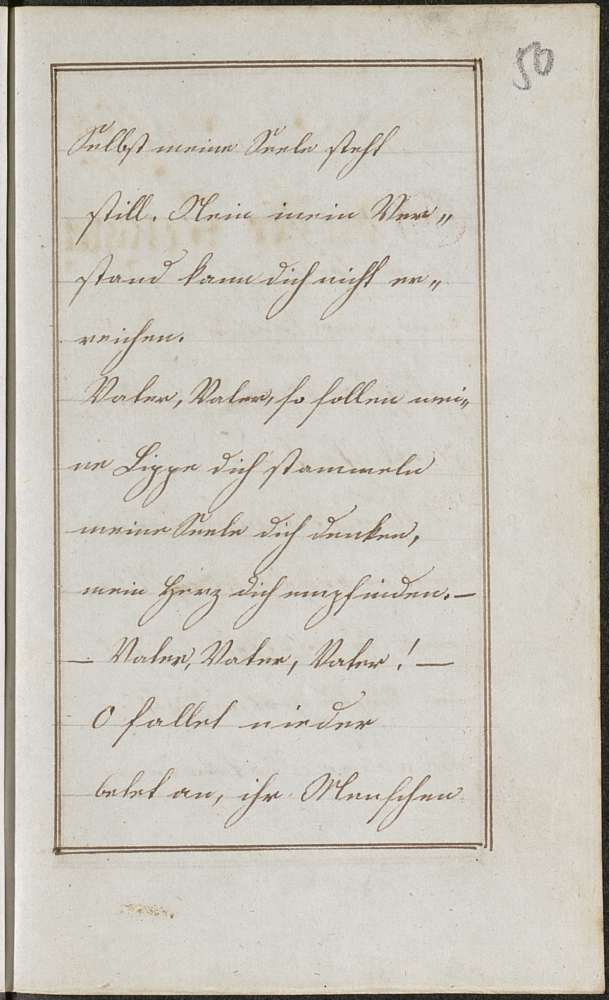 50
Selbst meine Seele steht
still. Nein mein Ver„
stand kann dich nicht er„
reichen.
Vater, Vater, so sollen mei„
ne Lippe dich stammeln
meine Seele dich denken,
mein Herz dich empfinden. —
— Vater, Vater, Vater! —
O fallet nieder
betet an, ihr Menschen